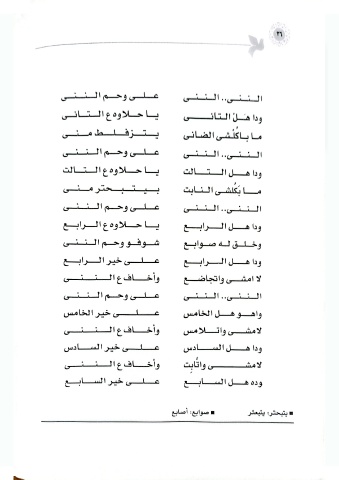 ٢٦
الننى.. الننى على وحم الننى
ودا هل التانى يا حلاوه ع التانى
ما باكلشى الضانى يتزفلط منى
الننى.. الننى على وحم الننى
ودا هل التالت يا حلاوه ع التالت
ما بكلشى النابت بيتبحتر منى
الننى.. الننى على وحم الننى
ودا هل الرابع يا حلاوه ع الرابع
وخلق له صوابع شوفو وحم الننى
ودا هل الرابع على خير الرابع
لا امشى واتجاضع وأخاف ع الننى
الننى.. الننى على وحم الننى
واهو هل الخامس على خير الخامس
لامشى واتلامس وأخاف ع الننى
ودا هل السادس على خير السادس
لامشى واتابت وأخاف ع الننى
وده هل السابع على خير السابع
■ يتبحثر: يتبعثر ■ صوابع: أصابع